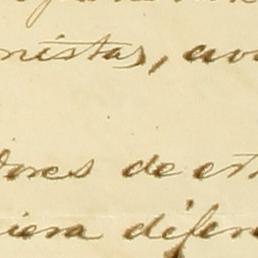 nistas, av
dores de est
iera difer